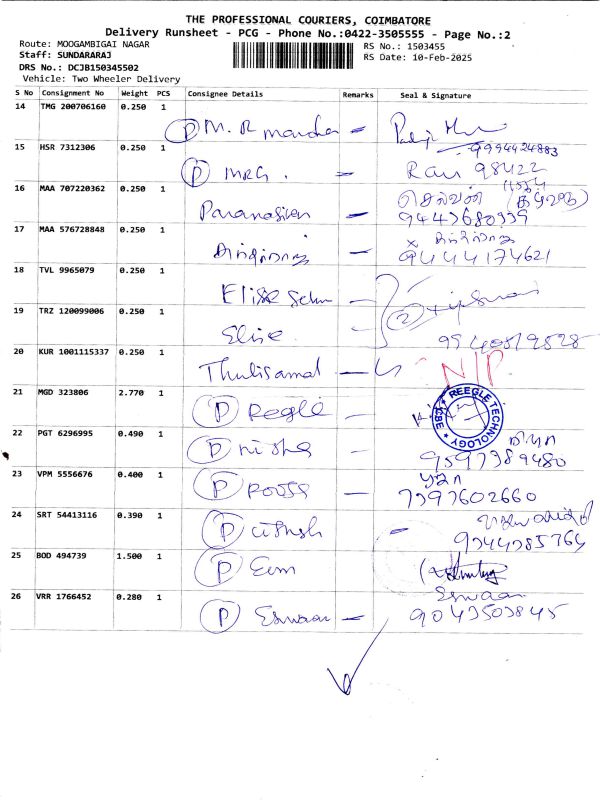 THE PROFESSIONAL COURIERS, COIMBATORE
Delivery Runsheet - PCG - Phone No.:0422-3505555 - Page No.:2
Route: MOOGAMBIGAI NAGAR
RS No.: 1503455
Staff: SUNDARARAJ
RS Date: 10-Feb-2025
DRS No.: DCJB150345502
Vehicle: Two Wheeler Delivery
S No Consignment No Weight PCS Consignee Details Remarks Seal & Signature
14 TMG 200706160 0.250 1
P M. R -
9994424883
15 HSR 7312306 0.250 1
P MRG. - Ravi 98422
16 MAA 707220362 0.250 1
செல்வன்
Paranasiven - 9443680939
17 MAA 576728848 0.250 1
- 9444174621
18 TVL 9965079 0.250 1
Elise Selvn -
19 TRZ 120099006 0.250 1
2
Elise. -
20 KUR 1001115337 0.250 1
Thulisamal - N/P
21 MGD 323806 2.770 1
P Reegle - REEGLE TECHNOLOGY CBE
22 PGT 6296995 0.490 1
P nisha - 9597389480
23 VPM 5556676 0.400 1
P - 7397602660
24 SRT 54413116 0.390 1
P - 9344385764
25 BOD 494739 1.500 1
P
Eswaan
26 VRR 1766452 0.280 1
P Eswaan - 9043503845